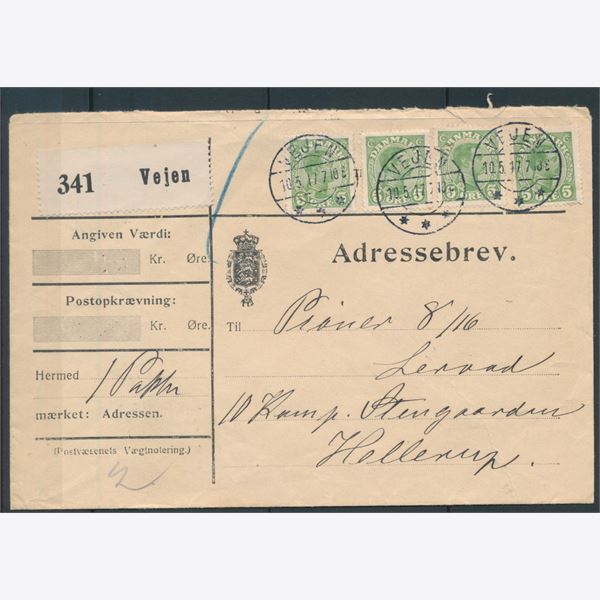 341 Vejen
VEJEN
10.5.17.7.10E
VEJEN
10.5.17.7.10E
VEJEN
10.5.17.7.10E
DANMARK
5 ØRE 5
Angiven Værdi:
Kr. Øre.
Postopkrævning:
Kr. Øre.
Hermed 1 Pakke
mærket: Adressen.
(Postvæsenets Vægtnotering.)
2
Adressebrev.
Til Pioner 8/16
Lervad
10 Komp. Stengaarden
Hellerup.